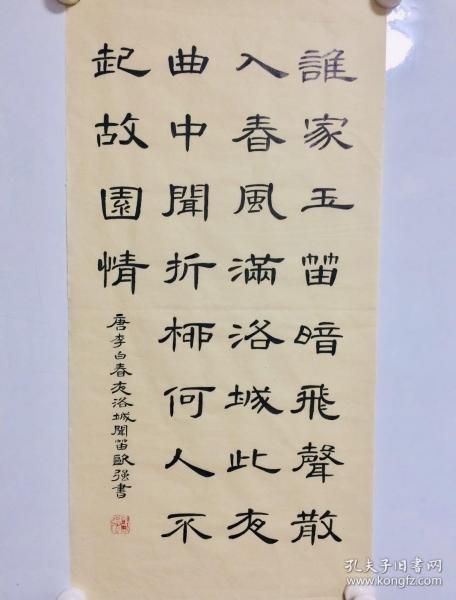 誰家玉笛暗飛聲散
入春風滿洛城此夜
曲中聞折柳何人不
起故園情
唐李白春夜洛城聞笛歐强書
孔夫子旧书网
www.kongfz.com